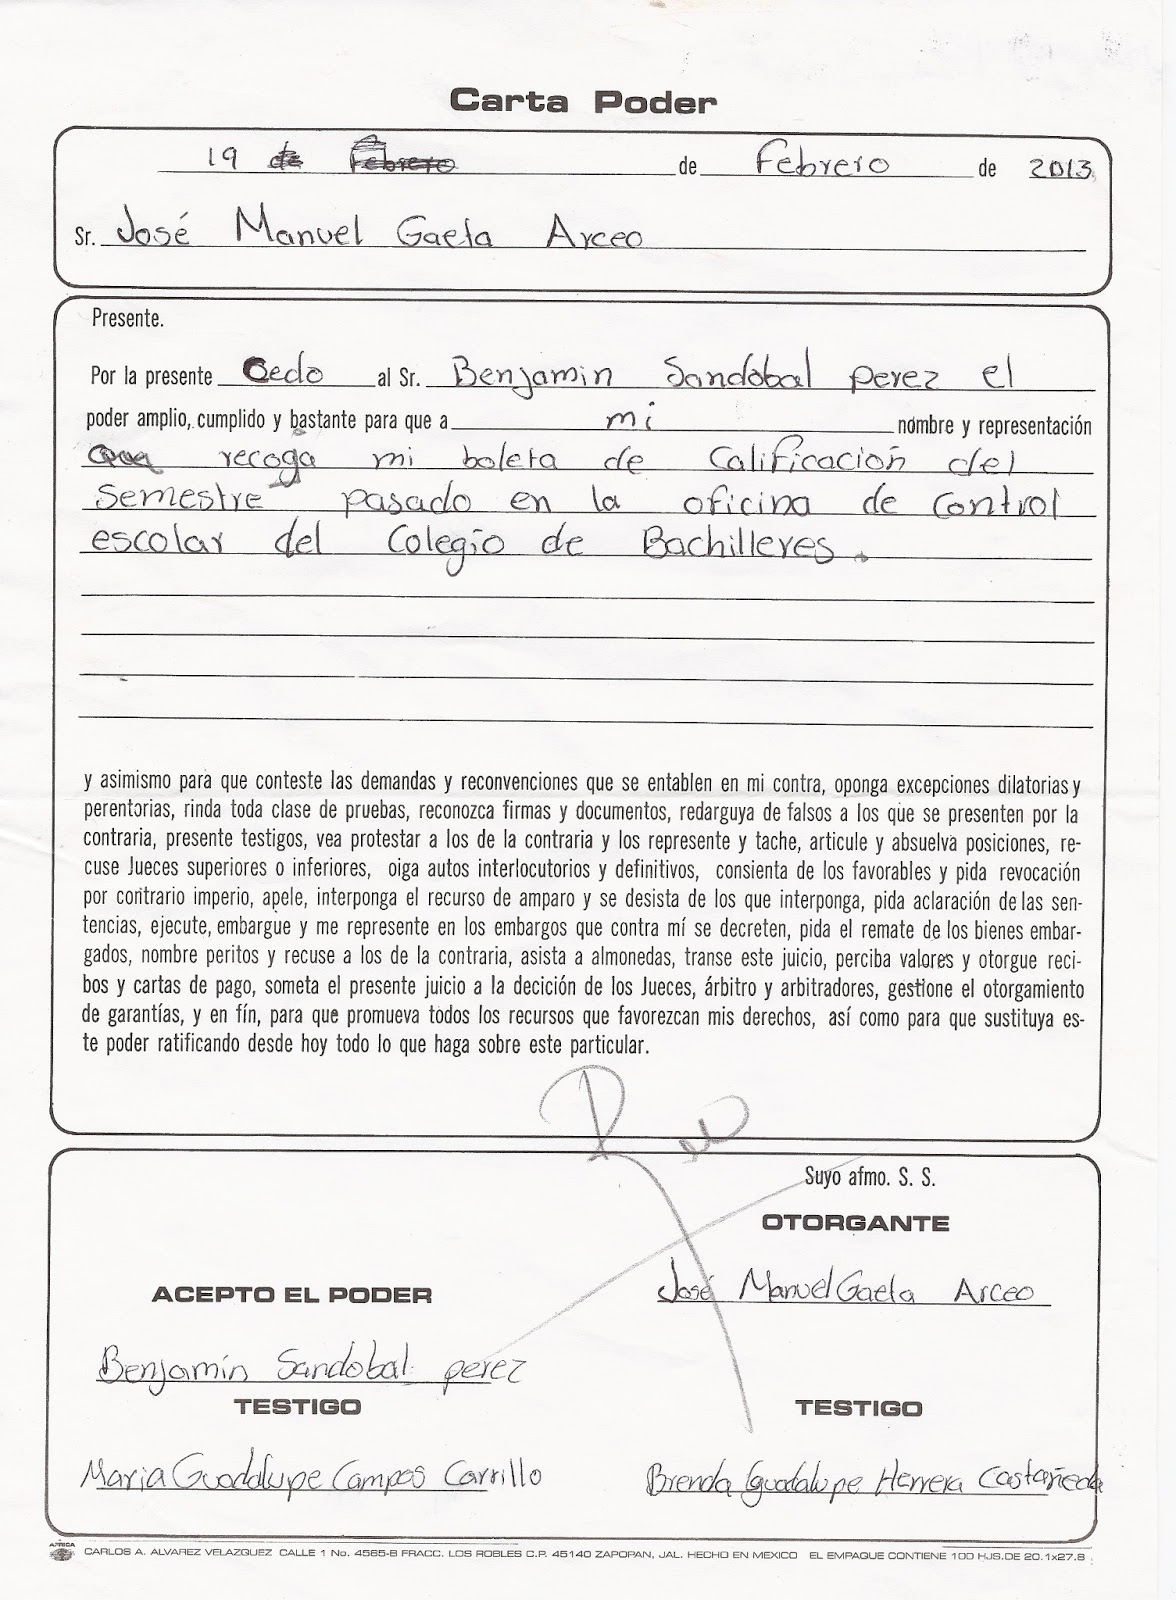 Carta Poder
19 de Febrero de Febrero de 2013
Sr. José Manuel Gaeta Arceo
Presente.
Por la presente Cedo al Sr. Benjamin Sandobal perez el
poder amplio, cumplido y bastante para que a mi nombre y representación
recoga mi boleta de Calificación del
Semestre pasado en la oficina de Control
escolar del Colegio de Bachilleres.
y asimismo para que conteste las demandas y reconvenciones que se entablen en mi contra, oponga excepciones dilatorias y
perentorias, rinda toda clase de pruebas, reconozca firmas y documentos, redarguya de falsos a los que se presenten por la
contraria, presente testigos, vea protestar a los de la contraria y los represente y tache, articule y absuelva posiciones, re-
cuse Jueces superiores o inferiores, oiga autos interlocutorios y definitivos, consienta de los favorables y pida revocación
por contrario imperio, apele, interponga el recurso de amparo y se desista de los que interponga, pida aclaración de las sen-
tencias, ejecute, embargue y me represente en los embargos que contra mí se decreten, pida el remate de los bienes embar-
gados, nombre peritos y recuse a los de la contraria, asista a almonedas, transe este juicio, perciba valores y otorgue reci-
bos y cartas de pago, someta el presente juicio a la decición de los Jueces, árbitro y arbitradores, gestione el otorgamiento
de garantías, y en fín, para que promueva todos los recursos que favorezcan mis derechos, así como para que sustituya es-
te poder ratificando desde hoy todo lo que haga sobre este particular.
Suyo afmo. S. S.
OTORGANTE
José Manuel Gaeta Arceo
ACEPTO EL PODER
Benjamín Sandobal perez
TESTIGO TESTIGO
Maria Guadalupe Campos Carrillo Brenda Guadalupe Herrera Castañeda
CARLOS A. ALVAREZ VELAZQUEZ CALLE 1 No. 4565-B FRACC. LOS ROBLES C.P. 45140 ZAPOPAN, JAL. HECHO EN MEXICO EL EMPAQUE CONTIENE 100 HJS.DE 20.1x27.8